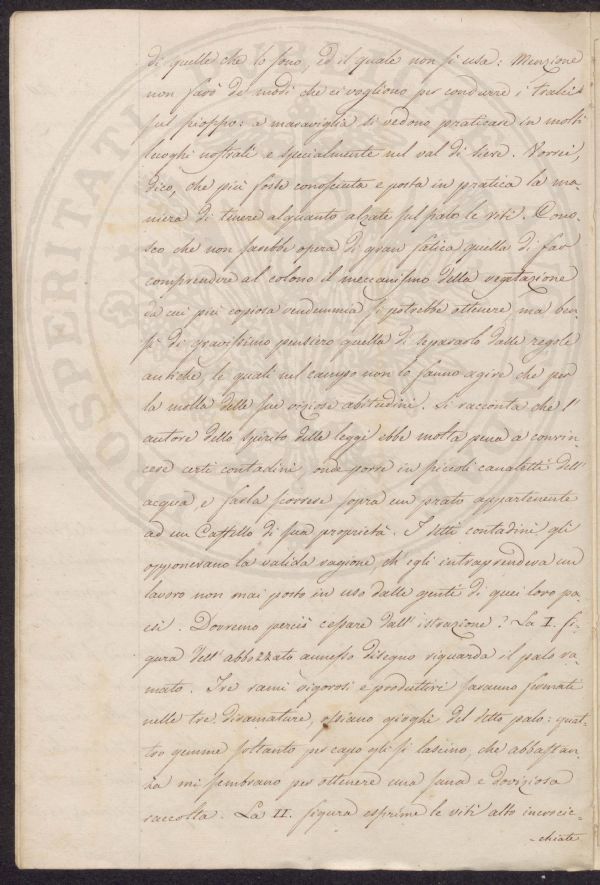 di quelle che lo sono, ed il quale non si usa: Menzione
non farò de' modi che ci vogliono per condurre i tralci
sul pioppo: a maraviglia si vedono praticare in molti
luoghi nostrali e specialmente nel val di Sieve. Vorrei,
dico, che più fosse conosciuta e posta in pratica la ma-
niera di tenere alquanto alzate sul palo le viti. Cono-
sco che non sarebbe opera di gran fatica quella di far
comprendere al colono il meccanismo della vegetazione
da cui più copiosa vendemmia si potrebbe ottenere, ma ben-
sì di gravissimo pensiero quella di separarlo dalle regole
antiche, le quali nel campo non lo fanno agire che per
la molla delle sue viziose abitudini. Si racconta che l'
autore dello spirito delle leggi ebbe molta pena a convin-
cere certi contadini, onde porre in piccoli canaletti dell'
acqua, e farla scorrere sopra un prato appartenente
ad un Castello di sua proprietà. I detti contadini gli
opponevano la valida ragione, ch'egli intraprendeva un
lavoro non mai posto in uso dalle genti di quei loro pa-
esi. Dovremo perciò cessare dall'istruzione? La I. fi-
gura dell'abbozzato annesso disegno riguarda il palo ra-
mato. Tre rami vigorosi e produttivi saranno fermati
nelle tre diramature, ossiano gioghi del detto palo: quat-
tro gemme soltanto per capo gli si lascino, che abbastan-
za mi sembrano per ottenere una sana e doviziosa
raccolta. La II. figura esprime le viti alto incrocic-
-chiate
PROSPERITATI PUBLICAE